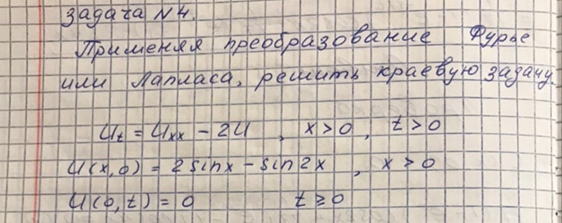 Задача №4.
Применяя преобразование Фурье
или Лапласа, решить краевую задачу.
Ut = Uxx - 2U , x>0, t>0
U(x,0) = 2sinx - sin2x , x>0
U(0,t) = 0 t≥0